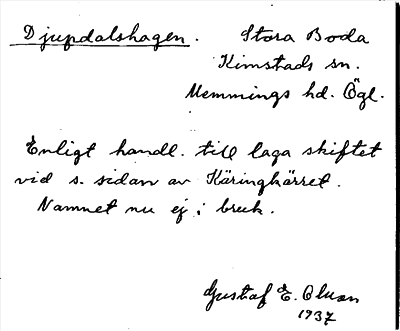 Djupdalshagen. Stora Boda
Kimstads sn.
Memmings hd. Ögl.
Enligt handl. till laga skiftet
vid s. sidan av Käringkärret.
Namnet nu ej i bruk.
Gustaf E. Olson
1937